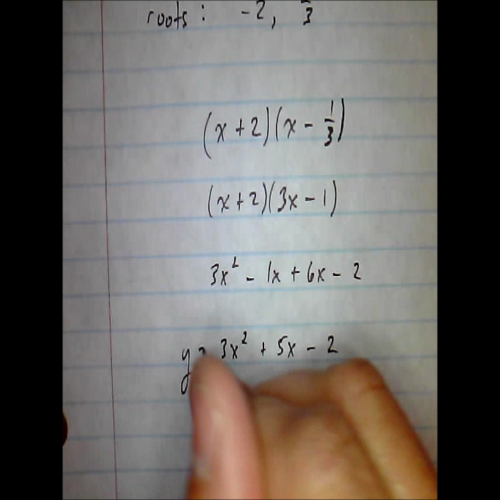 roots: -2, 1/3
(x+2)(x - 1/3)
(x+2)(3x - 1)
3x² - 1x + 6x - 2
y = 3x² + 5x - 2